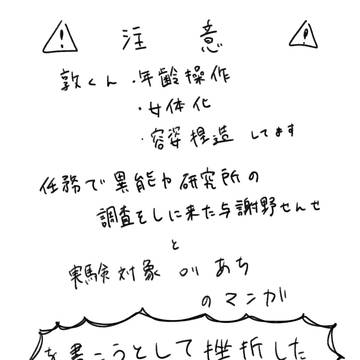 注意
敦くん・年齢操作
・女体化
・容姿捏造 してます
任務で異能力研究所の
調査をしに来た与謝野せんせ
と
実験対象 あち
のマンガ
を書こうとして挫折した